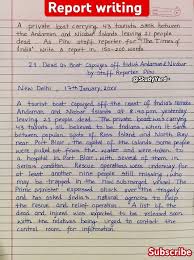 Report writing
A private boat carrying 43 tourists sank between
the Andaman and Nicobar Islands leaving 21 people
dead. As Pinu staff reporter for "The Times of
India" write a report in 150-200 words.
21 Dead as Boat Capsizes off India's Andaman & Nicobar
by Staff Reporter, Pinu
@StudyYard
New Delhi, 17th January, 20XX
A tourist boat off the coast of India's remote
Andaman and Nicobar Islands on yesterday
leaving 21 people dead. The private boat was carrying
43 tourists, all believed to be Indians, when it sank
between popular spots of Ross Island and North Bay
near Port Blair, the capital of the islands some people
were pulled out from the water and were taken to
a hospital in Port Blair, with several of them in
serious condition. Rescue operations were underway for
at least another nine people still missing who may
be trapped in the submerged vessel. The
Prime minister expressed shock over the tragedy
and has asked India's national agencies to help
the rescue and relief operation. A list of the
dead and injured was expected to be released soon
with the relatives being urged to contact the
control room for information.
Subscribe